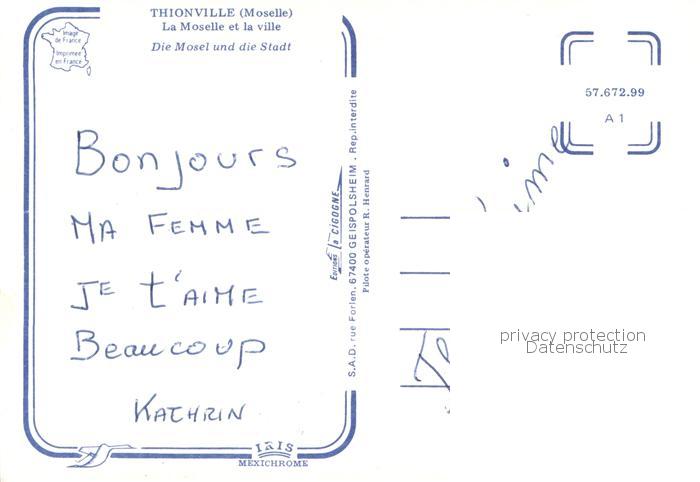 THIONVILLE (Moselle)
La Moselle et la ville
Die Mosel und die Stadt
Image
de France
Imprimée
en France
Bonjours
MA FEMME
JE t'AIME
Beaucoup
KATHRIN
IRIS
MEXICHROME
Editions la CIGOGNE
S.A.D. rue Forlen. 67400 GEISPOLSHEIM . Rep. interdite
Pilote opérateur R. Henrard
57.672.99
A 1
privacy protection
Datenschutz